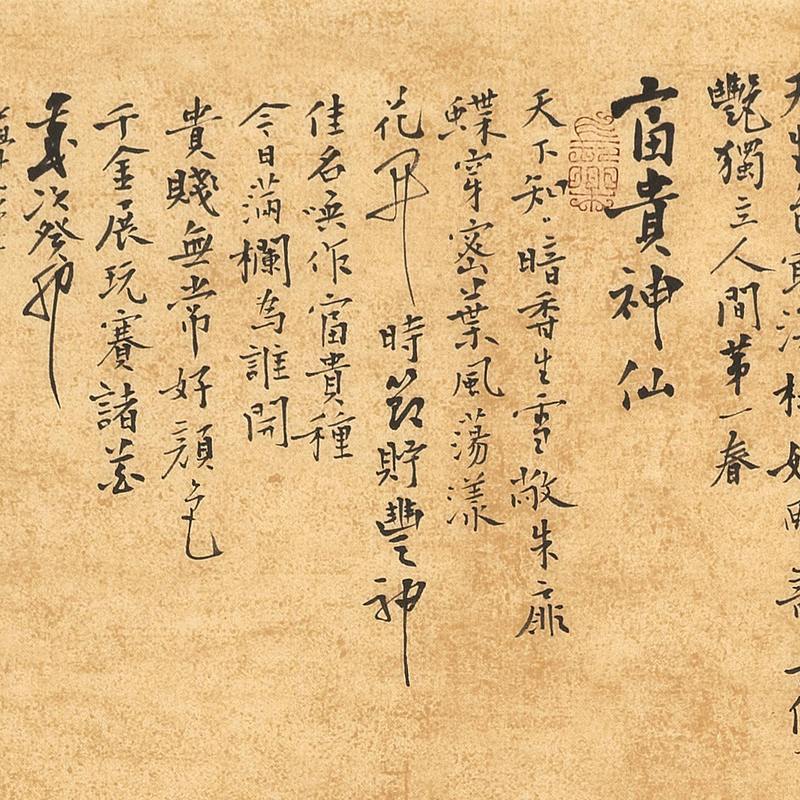 艷獨立人間第一春
富貴神仙
天下知暗香生雲敞朱扉
蝶穿密葉風蕩漾
花開時節貯豐神
佳名喚作富貴種
今日滿欄為誰開
貴賤無常好顏色
千金展玩賽諸花
歲次癸卯